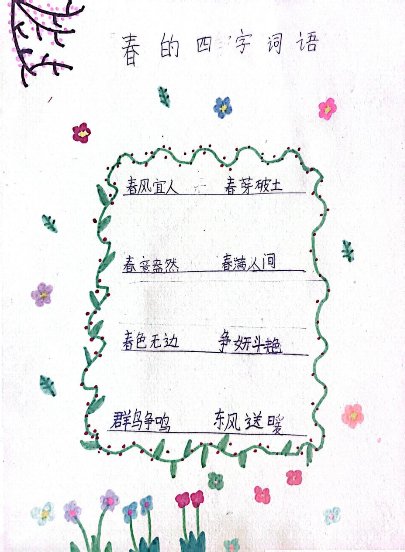 春的四字词语
春风宜人 春芽破土
春意盎然 春满人间
春色无边 争妍斗艳
群鸟争鸣 东风送暖